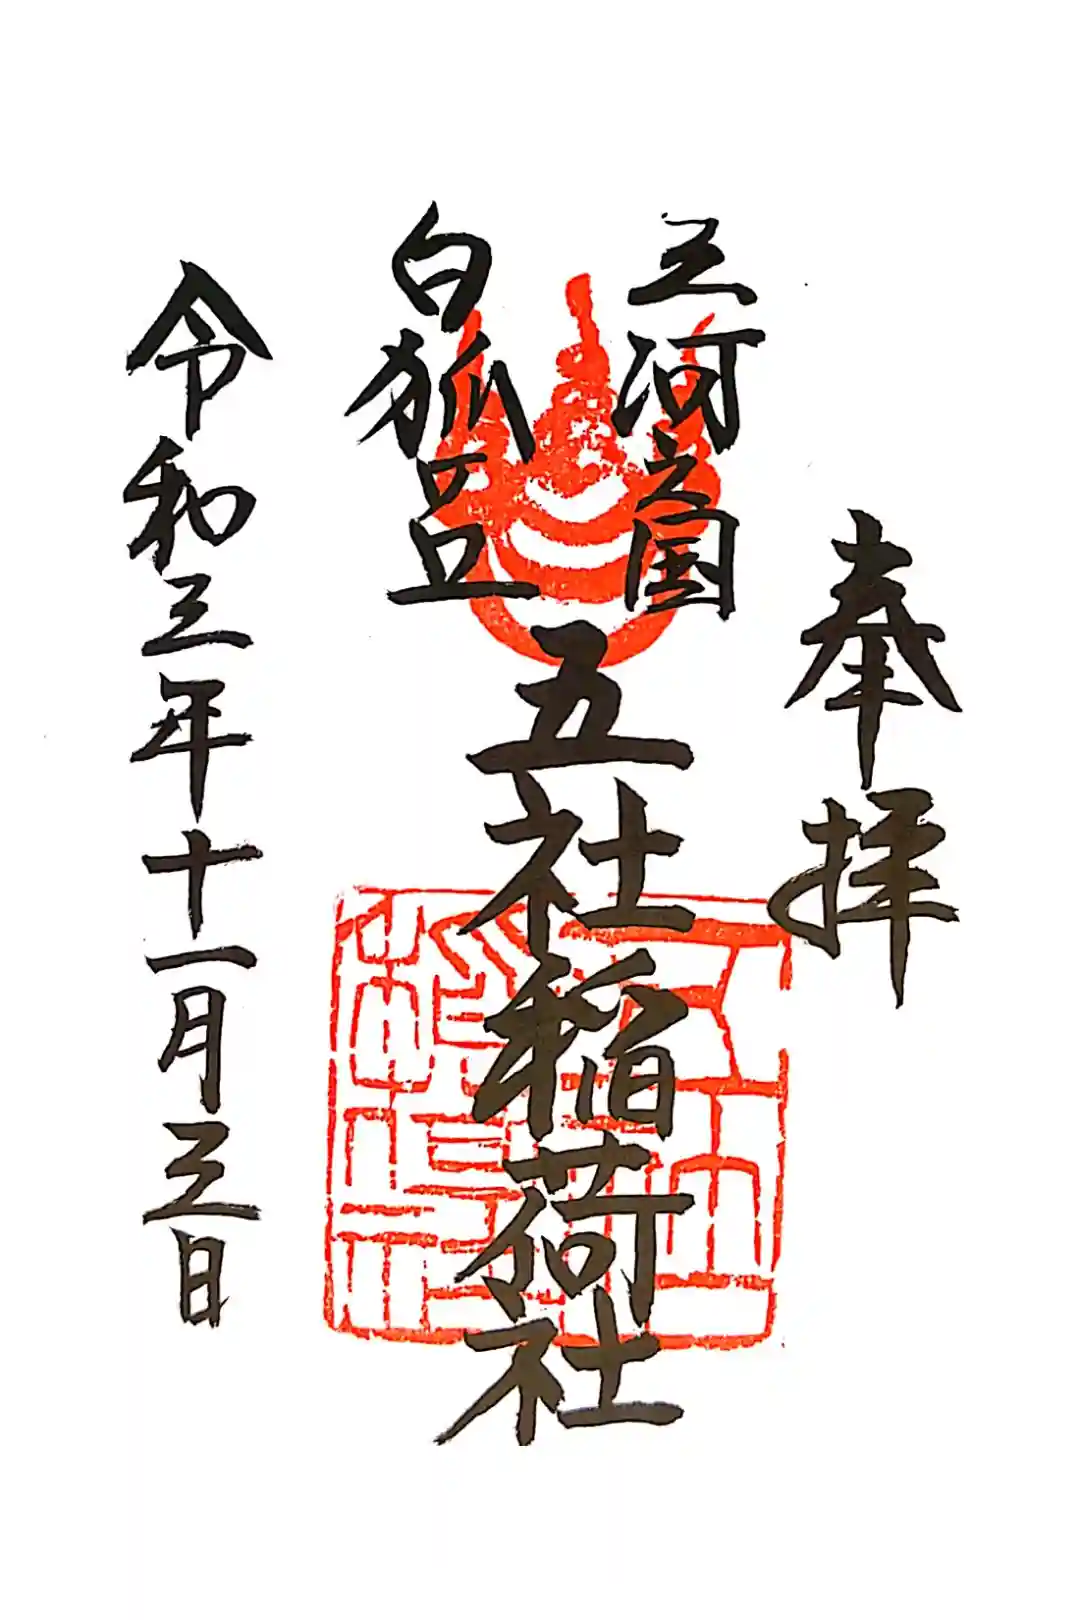 奉拝
三河之国
五社稲荷社
白狐
令和三年十一月三日